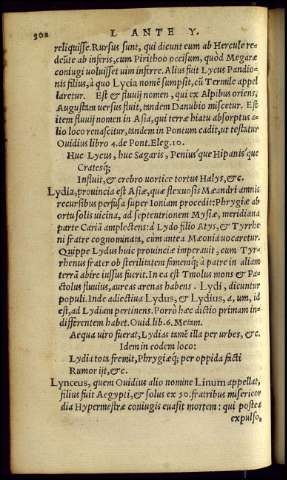 302
L ANTE Y.
reliquisse. Rursus sunt, qui dicunt eum ab Hercule re-
deũte ab inferis, cum Pirithoo occisum, quòd Megaræ
coniugi uoluisset uim inferre. Alius fuit Lycus Pandio-
nis filius, à quo Lycia nomẽ sumpsit, cũ Termile appel
laretur. Est & fluuij nomen, qui ex Alpibus oriens,
Augustam versus fluit, tandem Danubio miscetur. Est
item fluuij nomen in Asia, qui terræ hiatu absorptus a-
lio loco renascitur, tandem in Pontum cadit, ut testatur
Ouidius libro 4. de Pont. Eleg. 10.
Huc Lycus, huc Sagaris, Peniusq́ue Hipanisq́ue
Cratesq́;
Influit, & crebro vortice tortus Halys, &c.
Lydia, prouincia est Asiæ, quæ flexuosis Mæandri amnis
recursibus perfusa super Ioniam procedit: Phrygiæ ab
ortu solis uicina, ad septentrionem Mysiæ, meridiana
parte Cariã amplectens: à Lydo filio Atys, & Tyrrhe
ni fratre cognominata, cum antea Mæonia uocaretur.
Quippe Lydus huic prouinciæ imperauit, cum Tyr-
rhenus frater ob sterilitatem famemq́; à patre in aliam
terrã abire iussus fuerit. In ea est Tmolus mons & Pa-
ctolus fluuius, aureas arenas habens. Lydi, dicuntur
populi. Inde adiectiua Lydus, & Lydius, a, um, id
est, ad Lydiam pertinens. Porrò hac dictio primam in-
differentem habet. Ouid. lib. 6. Metam.
Aequa uiro fuerat, Lydias tamẽ illa per urbes, &c.
Idem in eodem loco:
Lydia tota fremit, Phrygiæq́; per oppida facti
Rumor it, &c.
Lynceus, quem Ouidius alio nomine Linum appellat,
filius fuit Aegypti, & solus ex 50. fratribus misericor
dia Hypermestræ coniugis euasit mortem: qui postea
expulso,